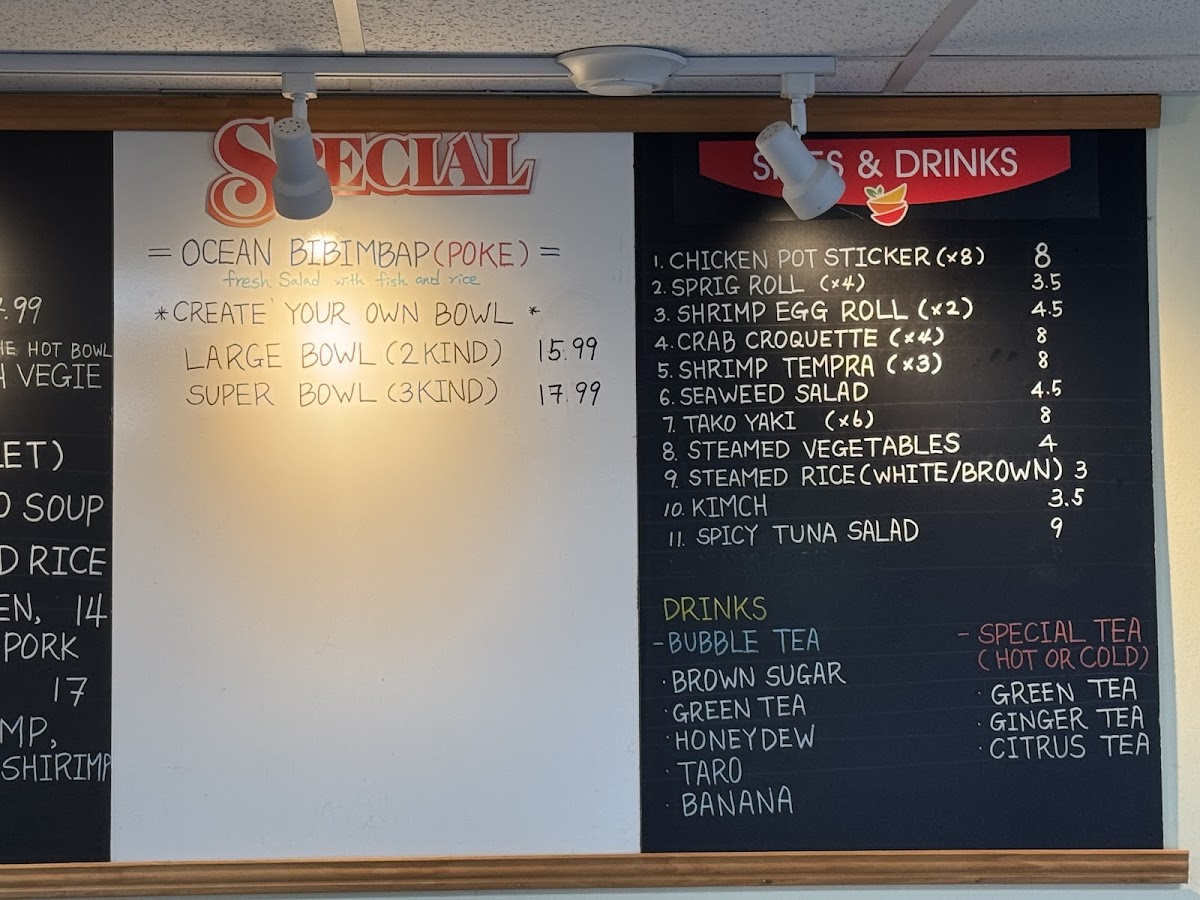 .99
HE HOT BOWL
H VEGIE
LET)
O SOUP
D RICE
EN, 14
PORK
17
MP,
SHIRIMP
SPECIAL
= OCEAN BIBIMBAP (POKE) =
fresh Salad with fish and rice
* CREATE YOUR OWN BOWL *
LARGE BOWL (2 KIND) 15.99
SUPER BOWL (3 KIND) 17.99
SIDES & DRINKS
1. CHICKEN POT STICKER (x8) 8
2. SPRIG ROLL (x4) 3.5
3. SHRIMP EGG ROLL (x2) 4.5
4. CRAB CROQUETTE (x4) 8
5. SHRIMP TEMPRA (x3) 8
6. SEAWEED SALAD 4.5
7. TAKO YAKI (x6) 8
8. STEAMED VEGETABLES 4
9. STEAMED RICE (WHITE/BROWN) 3
10. KIMCH 3.5
11. SPICY TUNA SALAD 9
DRINKS
- BUBBLE TEA
· BROWN SUGAR
· GREEN TEA
· HONEYDEW
· TARO
· BANANA
- SPECIAL TEA
(HOT OR COLD)
· GREEN TEA
· GINGER TEA
· CITRUS TEA